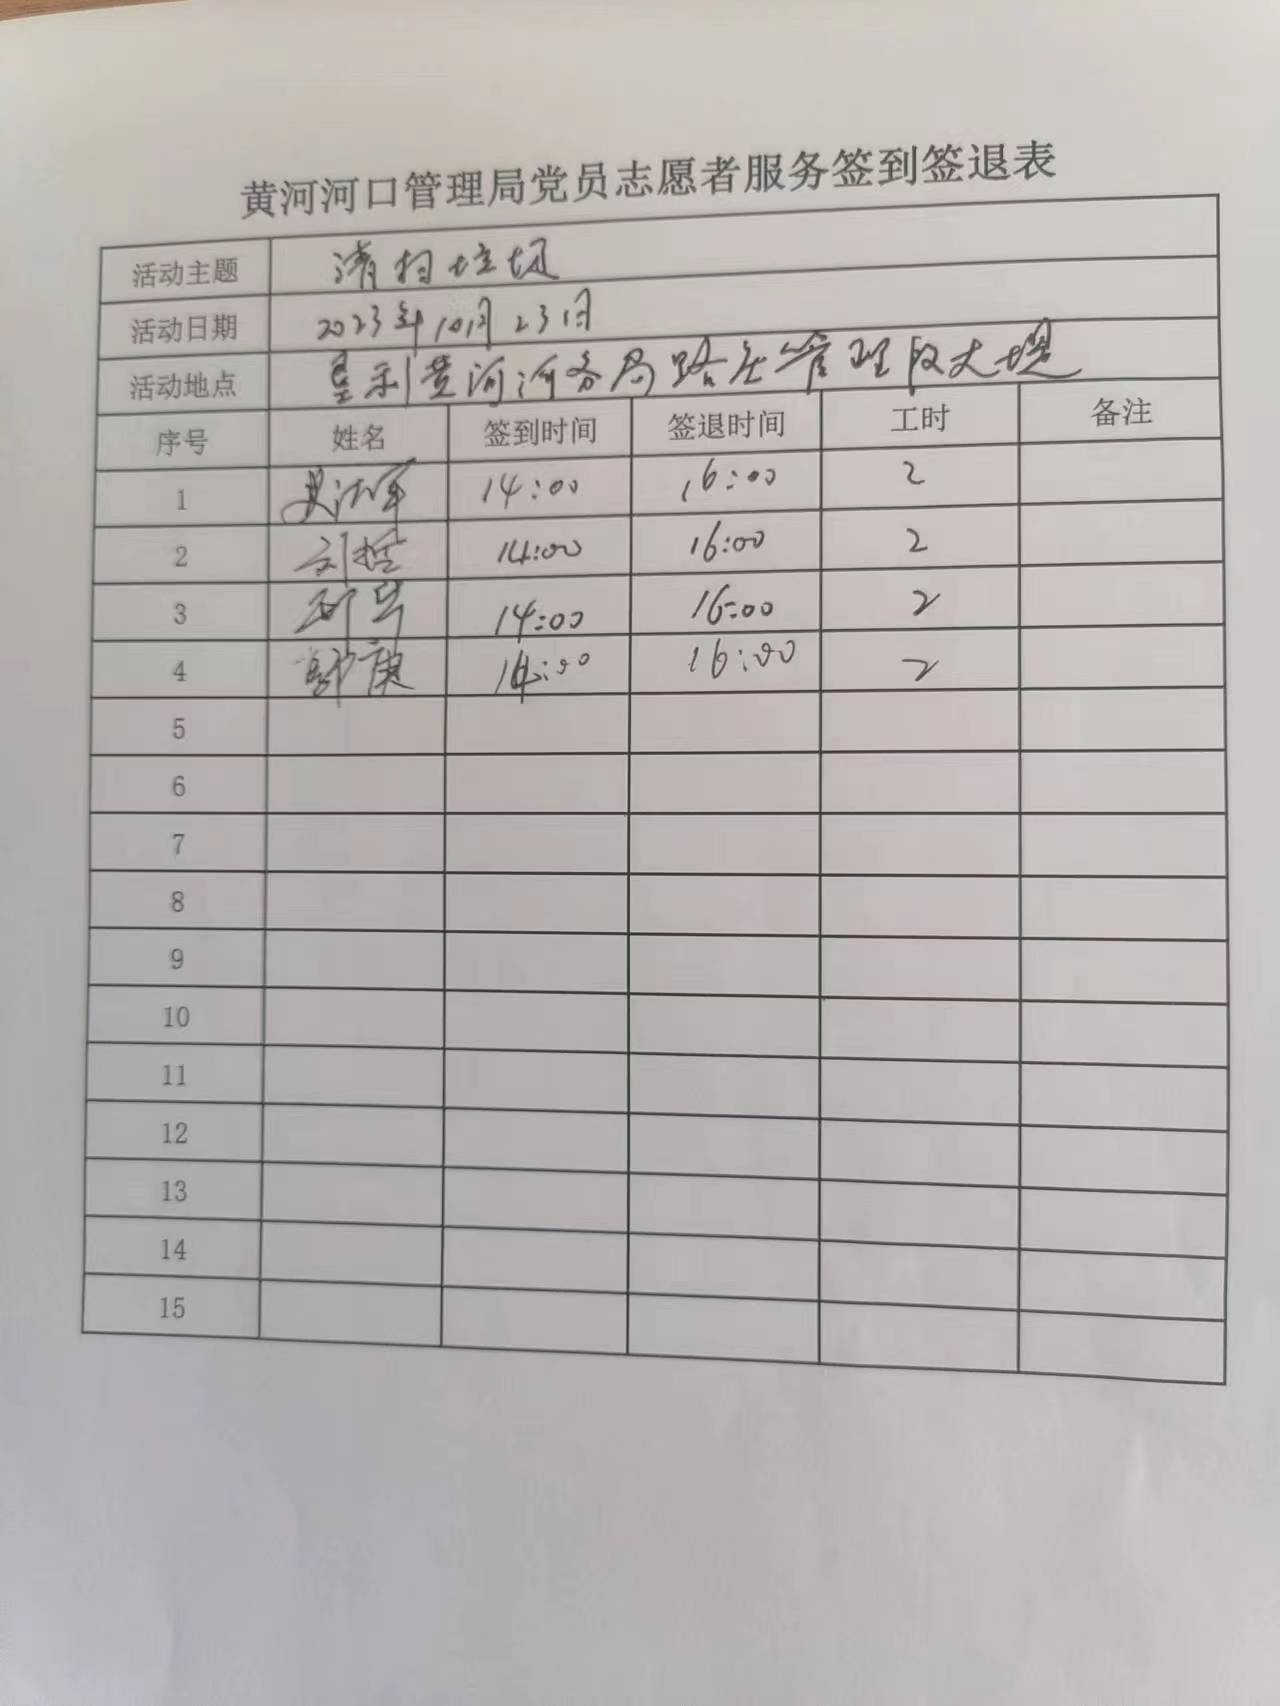 黄河河口管理局党员志愿者服务签到签退表
活动主题 清扫垃圾
活动日期 2023年10月23日
活动地点 垦利黄河河务局路庄管理段大堤
序号 姓名 签到时间 签退时间 工时 备注
1 14:00 16:00 2
2 刘哲 14:00 16:00 2
3 14:00 16:00 2
4 14:00 16:00 2
5
6
7
8
9
10
11
12
13
14
15